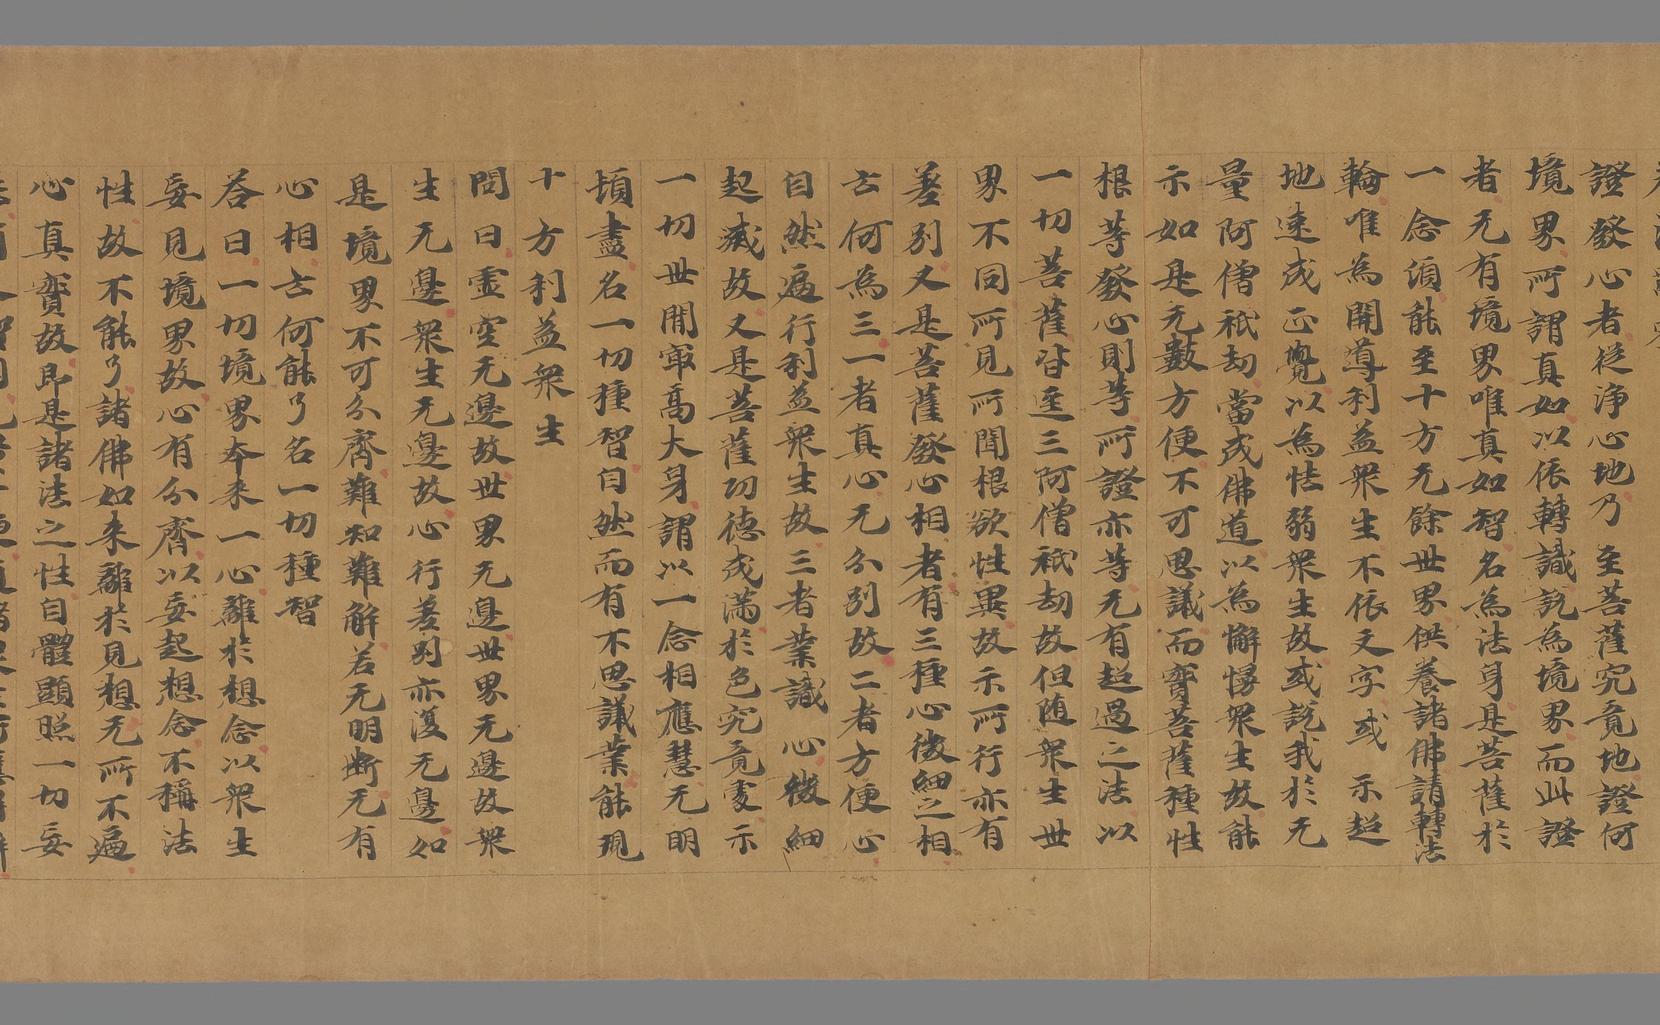 證發心者從淨心地乃至菩薩究竟地證何
境界所謂真如以依轉識說為境界而此證
者无有境界唯真如智名為法身是菩薩於
一念須能至十方无餘世界供養諸佛請轉法
輪唯為開導利益衆生不依文字或示超
地速成正覺以為怯弱衆生故或說我於无
量阿僧祇劫當成佛道以為懈慢衆生故能
示如是无數方便不可思議而實菩薩種性
根等發心則等所證亦等无有超過之法以
一切菩薩皆逕三阿僧祇劫故但随衆生世
界不同所見所聞根欲性異故示所行亦有
差別又是菩薩發心相者有三種心微細之相
云何為三一者真心无分別故二者方便心
自然遍行利益衆生故三者業識心微細
起滅故又是菩薩功德成滿於色究竟處示
一切世間㝡高大身謂以一念相應慧无明
頓盡名一切種智自然而有不思議業能現
十方利益衆生
問曰虛空无邊故世界无邊世界无邊故衆
生无邊衆生无邊故心行差別亦復无邊如
是境界不可分齊難知難解若无明斷无有
心相云何能了名一切種智
荅曰一切境界本来一心離於想念以衆生
妄見境界故心有分齊以妄起想念不稱法
性故不能了諸佛如来離於見想无所不遍
心真實故即是諸法之性自體顯照一切妄